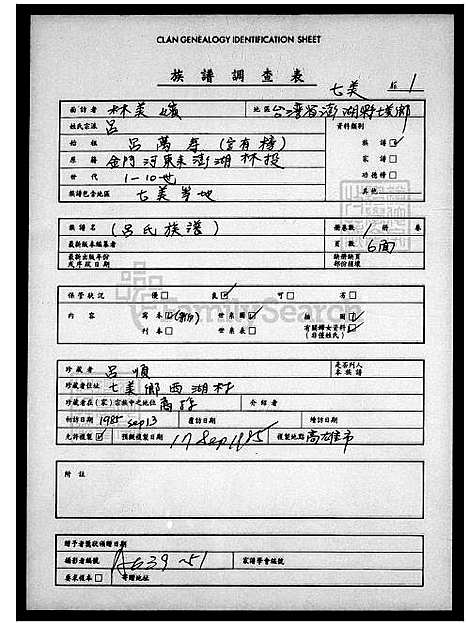 CLAN GENEALOGY IDENTIFICATION SHEET
族譜調查表
七美 1
面訪者 林美 地區 台灣省澎湖縣七美鄉
姓氏宗派 呂 資料類別
始祖 呂萬 族譜☑
原籍 金門河東來澎湖林投 家譜□
世代 1-10世 功德榜□
族譜包含地區 七美等地 其他
族譜名 (呂氏族譜) 冊卷數 1 冊 卷
最新版本編纂者 頁數 6面
最新出版年份 缺冊缺頁
或序跋日期 部份損壞
保管狀況 優□ 良☑ 可□ 劣□
內容 寫本☑ 世系圖☑ 插圖
刊本□ 世系表□ 有關婦女資料
(非僅姓氏)
珍藏者 呂順 是否列入
本族譜
珍藏者住址 七美鄉西湖村
珍藏者在(家)宗族中之地位 介紹者
初訪日期 1985 Sep 13 覆訪日期 續訪日期
允許複製☑ 預擬複製日期 17 Sep 1985 複製地點 高雄市
附註
贈予者獎狀頒贈日期
攝影者編號 A639-51 家譜學會編號
要求複本□ 寄贈地址
FamilySearch